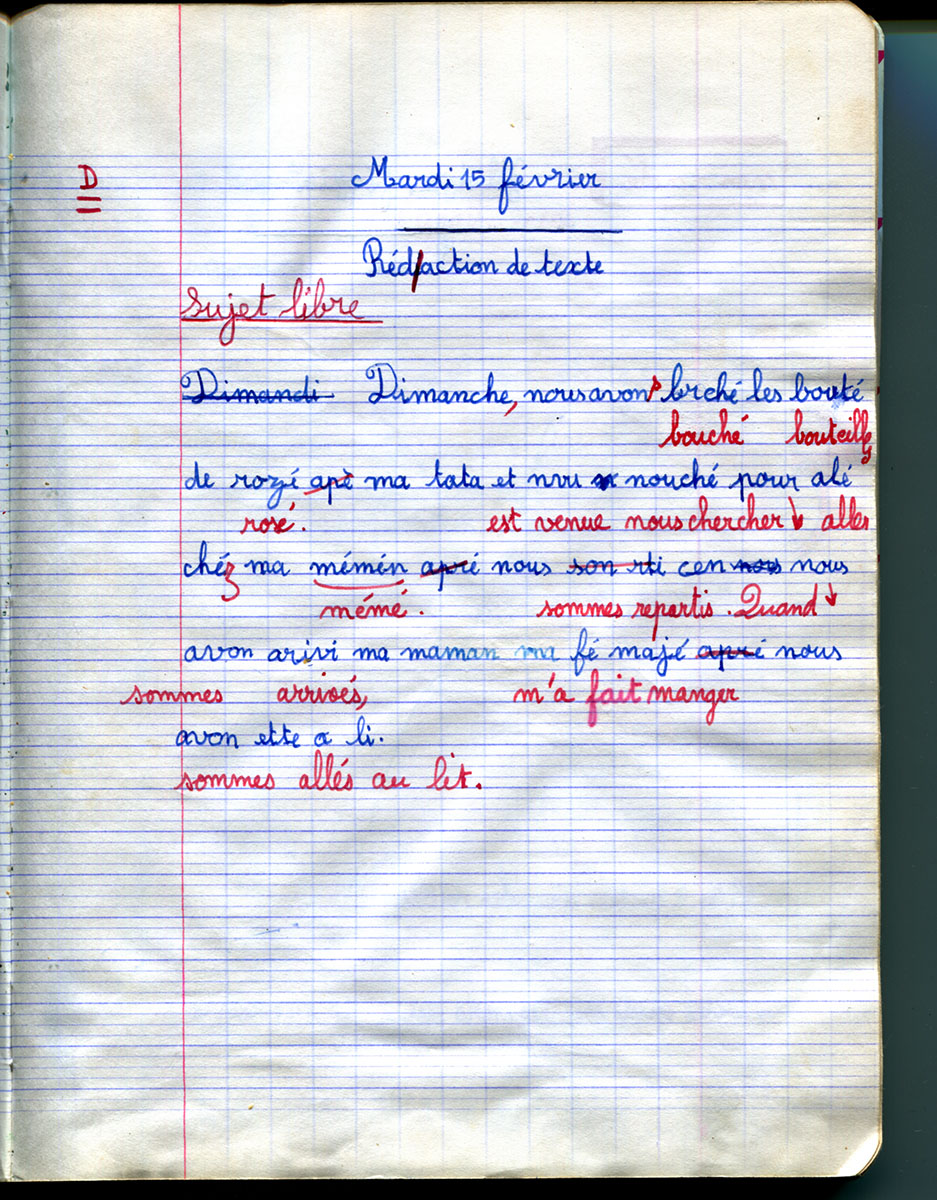 D
Mardi 15 février
Rédaction de texte
Sujet libre
Dimandi Dimanche, nous avons bché les bouté
bouché bouteilles
de rozé apè ma tata et nouché pour alé
rosé. est venue nous chercher aller
chéz ma mémén apré nous son rti cen nous nous
mémé. sommes repartis. Quand
avon arivi ma maman ma fé majé apré nous
sommes arrivés, m'a fait manger
avon ette a li.
sommes allés au lit.